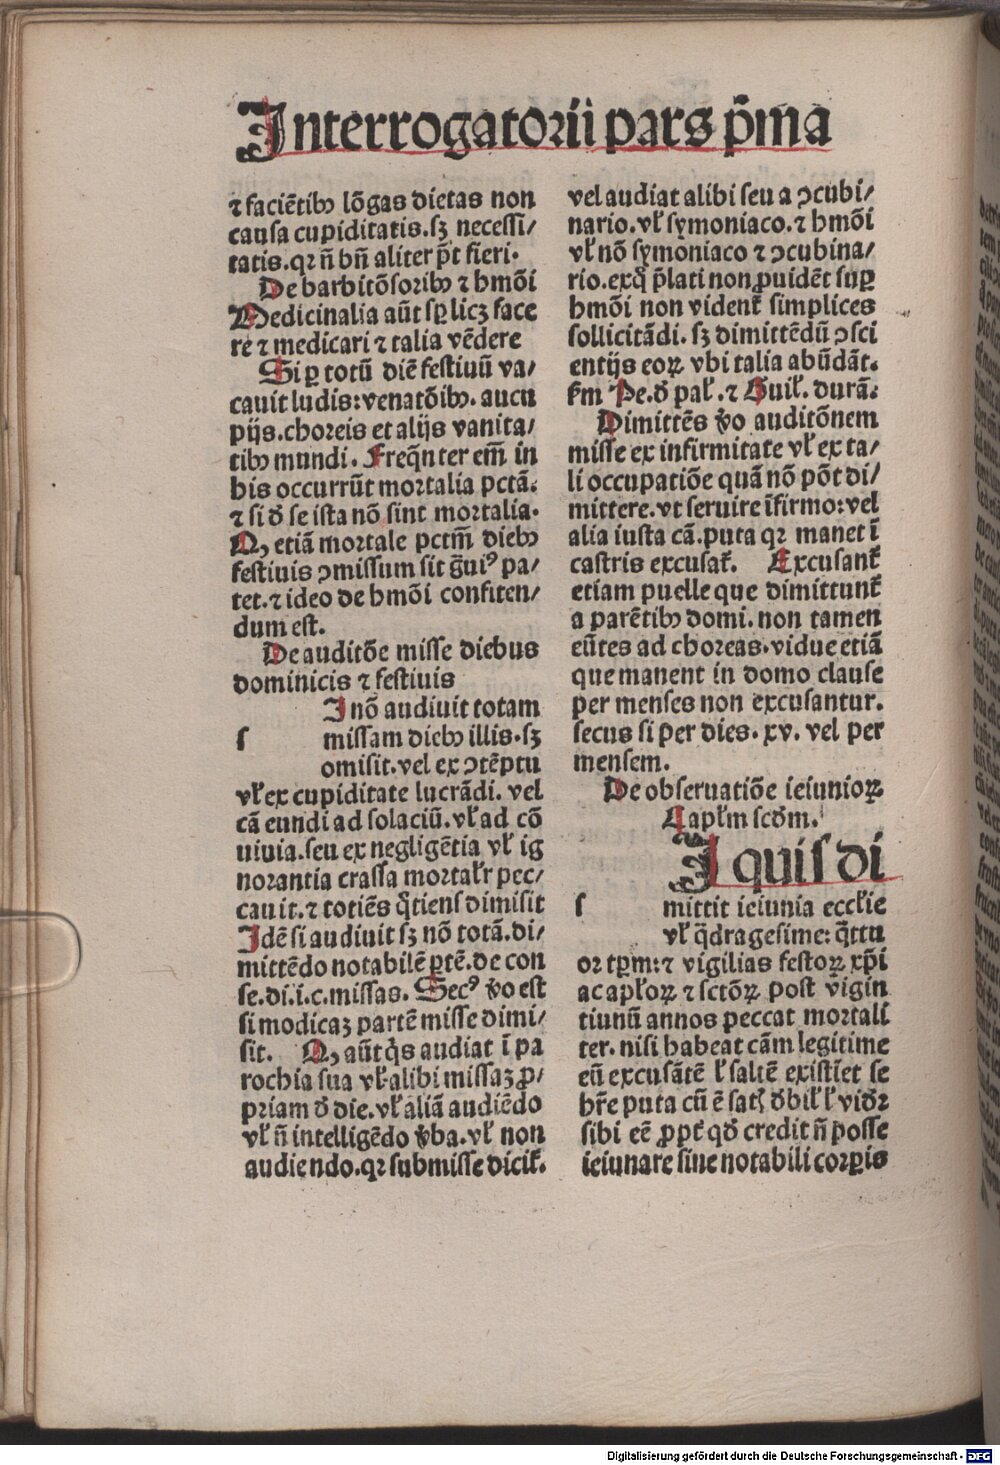 Interrogatorii pars p̄ma
⁊ faciētibꝰ lōgas dietas non
causa cupiditatis.sꝫ necessi/
tatis.qꝛ n̄ bn̄ aliter p̄t fieri.
De barbitōsoribꝰ ⁊ hmōi
Medicinalia aūt sꝑ licꝫ face
re ⁊ medicari ⁊ talia vēdere
Si ꝑ totū diē festiuū va/
cauit ludis:venatōibꝰ.aucu
pijs.choreis et alijs vanita/
tibꝰ mundi. Freq̄nter em̄ in
his occurrūt mortalia pctā.
⁊ si ð se ista nō sint mortalia.
Qꝫ etiā mortale pctm̄ diebꝰ
festiuis ↄmissum sit g̃uiꝰ pa/
tet.⁊ ideo de hmōi confiten/
dum est.
De auditōe misse diebus
dominicis ⁊ festiuis
I nō audiuit totam
s missam diebꝰ illis.sꝫ
omisit.vel ex ↄtēptu
vł ex cupiditate lucrādi. vel
cā eundi ad solaciū.vł ad cō
uiuia.seu ex negligētia vł ig
norantia crassa mortałr pec/
cauit.⁊ totiēs q̄tiens dimisit
Idē si audiuit sꝫ nō totā.di/
mittēdo notabilē ꝑtē.de con
se.di.i.c.missas. Secꝰ ꝟo est
si modicaꝫ partē misse dimi/
sit. Qꝫ aūt q̇s audiat ī pa
rochia sua vł alibi missaꝫ ꝓ/
priam ð die.vł aliā audiēdo
vł n̄ intelligēdo ꝟba.vł non
audiendo.qꝛ submisse dicit̉.
vel audiat alibi seu a ↄcubi/
nario.vł symoniaco.⁊ hmōi
vł nō symoniaco ⁊ ↄcubina/
rio.exq̊ p̄lati non ꝓuidēt suꝑ
hmōi non vident̉ simplices
sollicitādi.sꝫ dimittēdū ↄsci
entijs eoꝝ vbi talia abūdāt.
fm Pe.ð pał.⁊ Guił.durā.
Dimittēs ꝟo auditōnem
misse ex infirmitate vł ex ta/
li occupatiōe quā nō pōt di/
mittere.vt seruire īfirmo:vel
alia iusta cā.puta qꝛ manet ī
castris excusat̉. Excusant̉
etiam puelle que dimittunt̉
a parētibꝰ domi.non tamen
eūtes ad choreas.vidue etiā
que manent in domo clause
per menses non excusantur.
secus si per dies.xv.vel per
mensem.
De obseruatiōe ieiunioꝝ
Capłm scðm.
I quis di
s mittit ieiunia eccłie
vł q̄dragesime:q̄ttu
or tꝑm:⁊ vigilias festoꝝ xp̄i
ac apłoꝝ ⁊ sctōꝝ post vigin
tiunū annos peccat mortali
ter.nisi habeat cām legitime
eū excusātē ł saltē existīet se
hr̄e puta cū ē sat̉ ðbił ł vidꝛ
sibi eē ꝓpt̉ qð credit n̄ posse
ieiunare sine notabili corꝑis
Digitalisierung gefördert durch die Deutsche Forschungsgemeinschaft - DFG